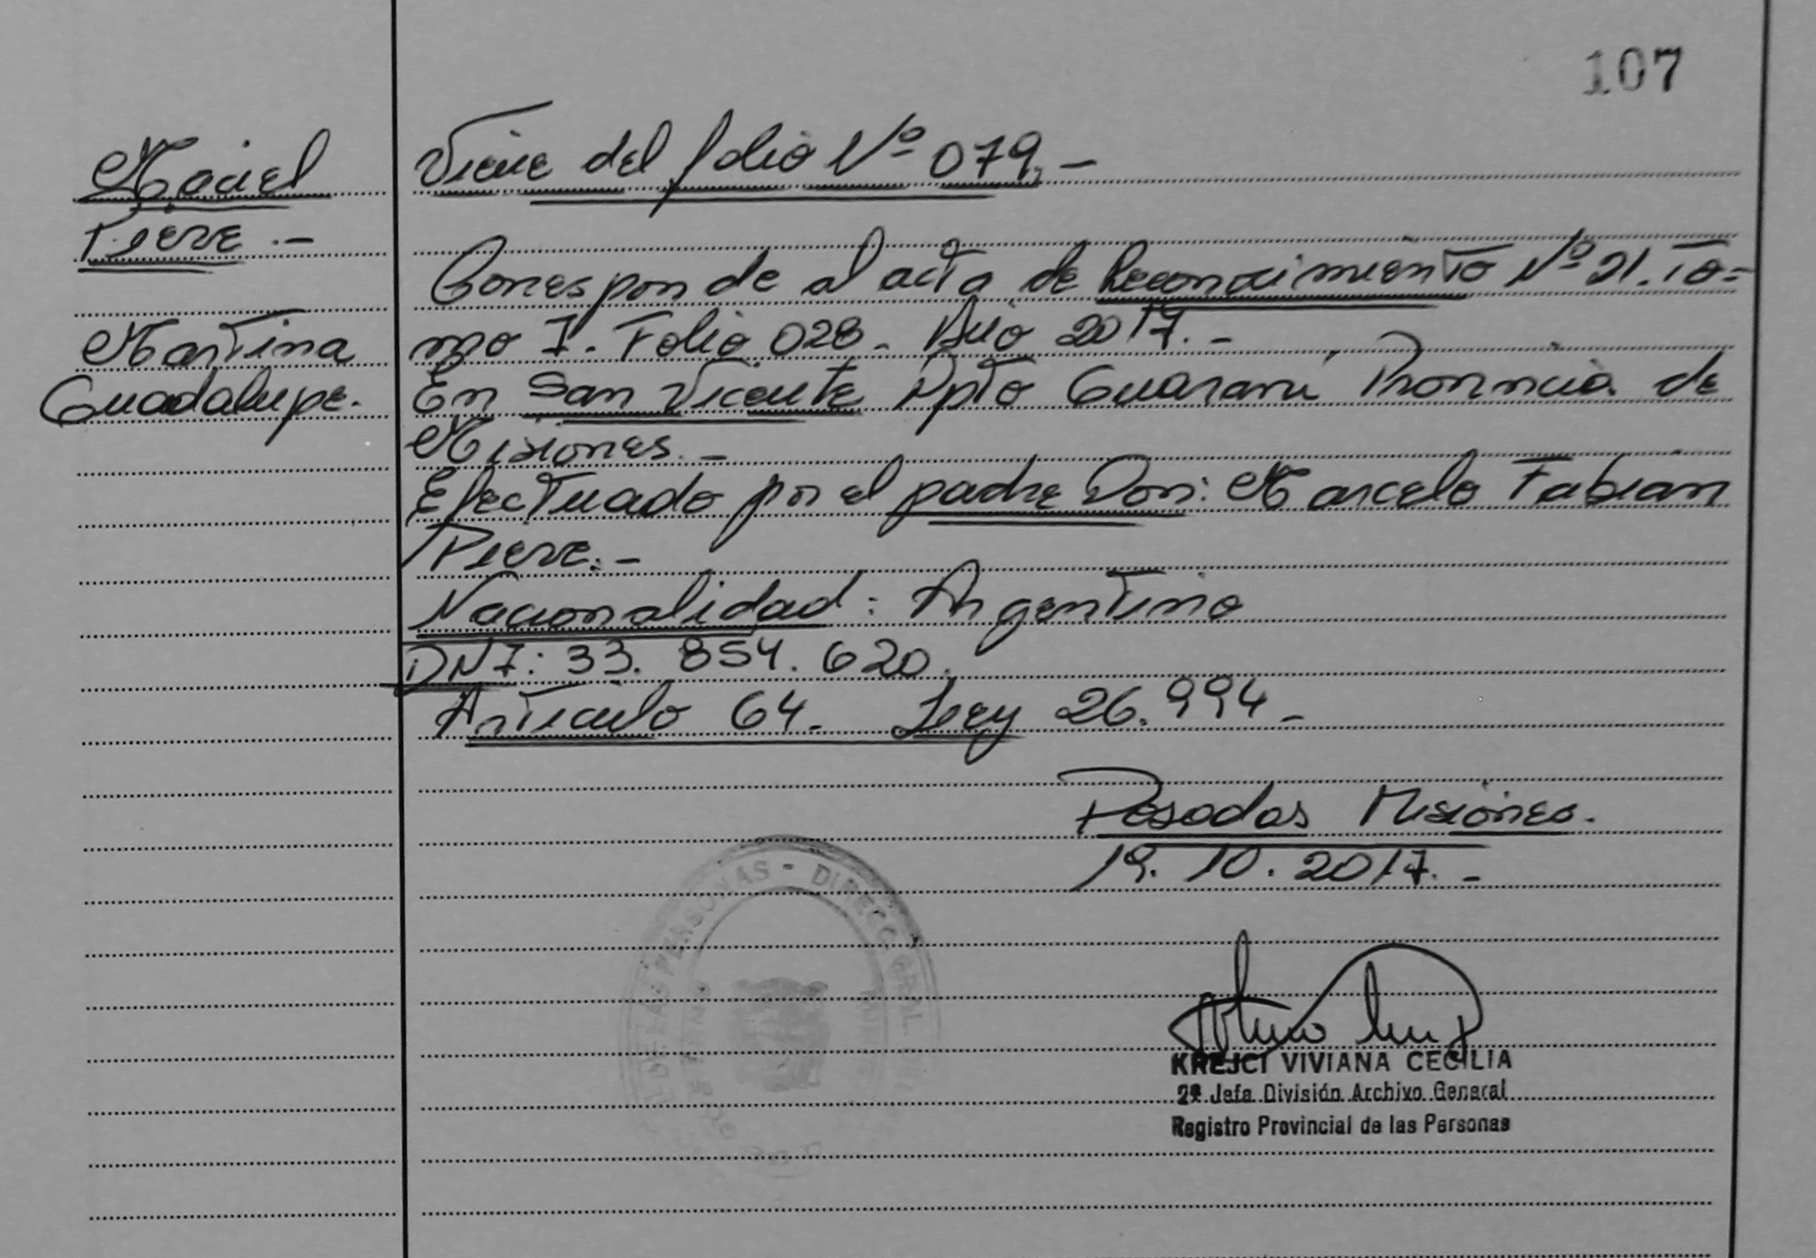 107
Maciel
Pieve.-
Martina
Guadalupe.
Viene del folio Nº 079.-
Corresponde al acta de Reconocimiento Nº 21. To=
mo I. Folio 028. Año 2017.-
En San Vicente Dpto Guarani Provincia de
Misiones.-
Efectuado por el padre Don: Marcelo Fabian
Pieve.-
Nacionalidad: Argentino
DNI: 33.854.620.
Articulo 64. Ley 26.994-
Posadas Misiones.
19.10.2017.-
DE LAS PERSONAS - DIRECC GRAL
KREJCI VIVIANA CECILIA
2ª Jefa División Archivo General
Registro Provincial de las Personas